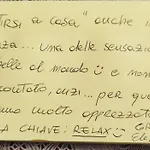 TRSI A CASA" ANCHE I
ZA... UNA DELLE SENSAZIO
BELLE AL MONDO ☺ E NON
SCONTATO, ANZI... PER QUE
MO MOLTO APPREZZAT
LA CHIAVE: RELAX ☺ GR